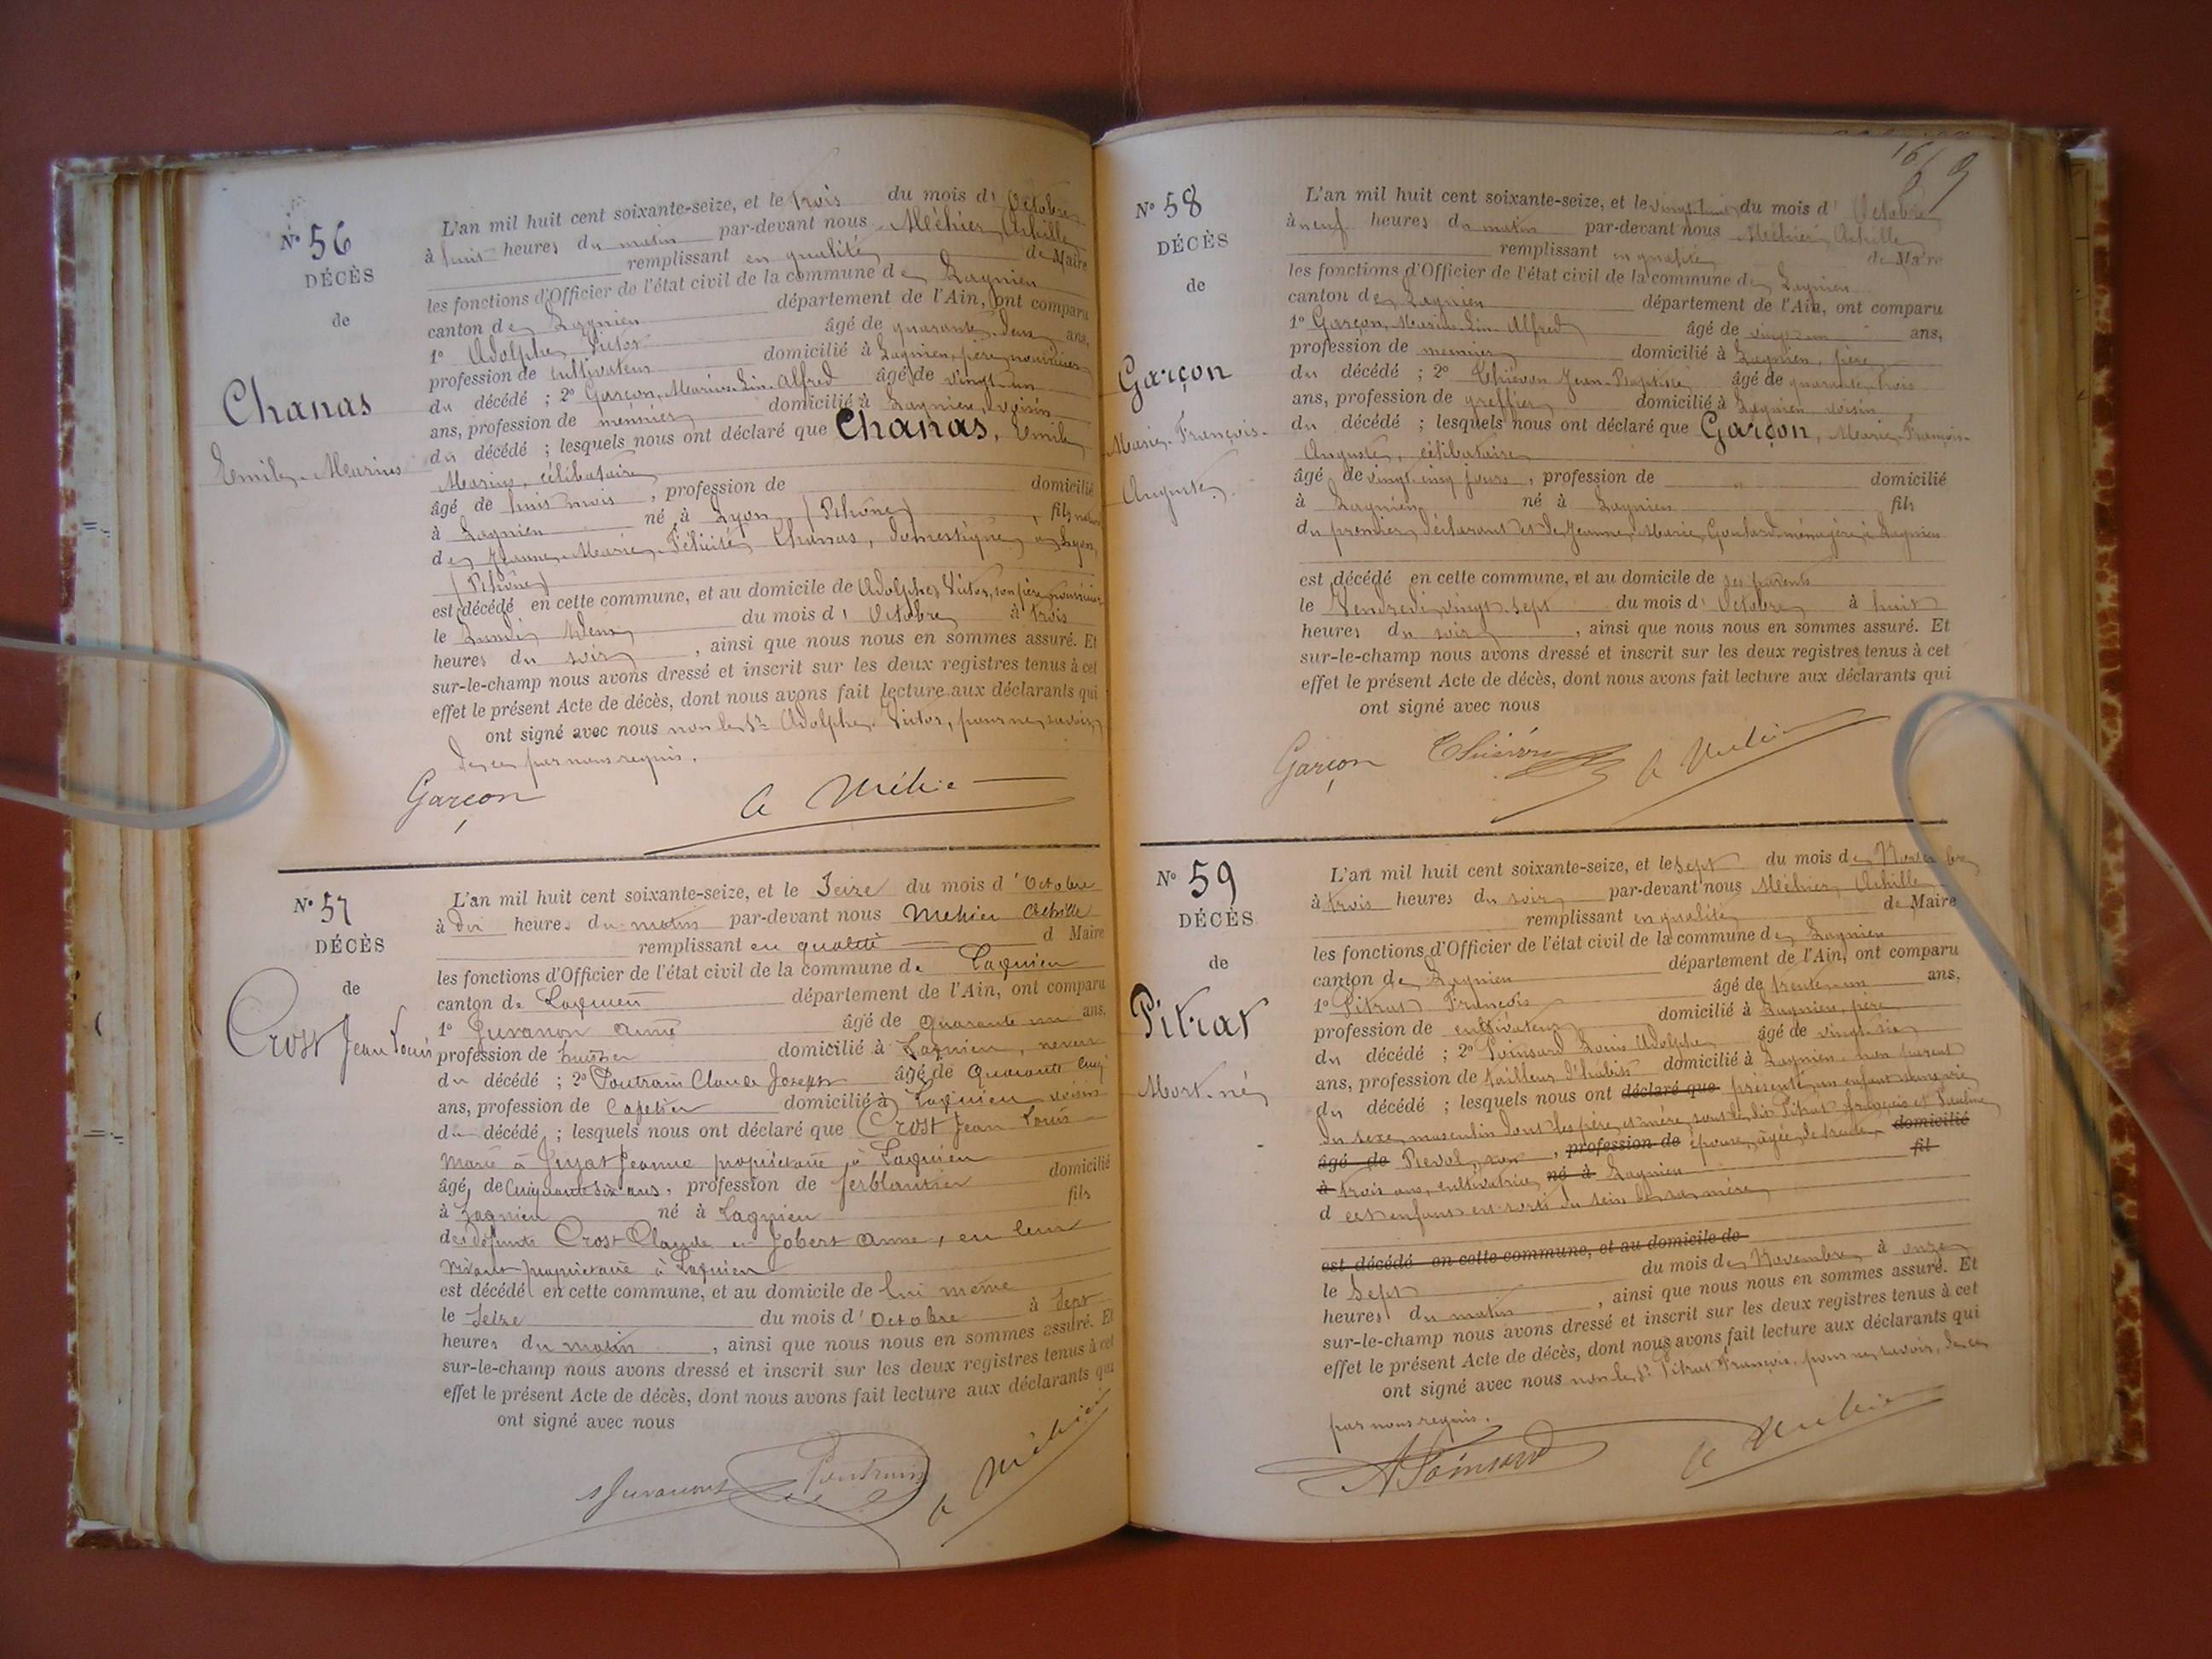 N° 56
DÉCÈS
de
Chanas
Emile Marius
L'an mil huit cent soixante-seize, et le trois du mois d' Octobre
à huit heures du matin par-devant nous Méhier, Achille
remplissant en qualité de Maire
les fonctions d'Officier de l'état civil de la commune de Lagnieu
canton de Lagnieu département de l'Ain, ont comparu
1° Adolphe Victor âgé de quarante-deux ans,
profession de cultivateur domicilié à Lagnieu, père nourricier
du décédé ; 2° Garçon, Marius Lin Alfred âgé de vingt-un
ans, profession de meunier domicilié à Lagnieu, voisin
du décédé ; lesquels nous ont déclaré que Chanas, Emile
Marius, célibataire
âgé de huit mois, profession de domicilié
à Lagnieu né à Lyon (Rhône), fils
de Jeanne-Marie Félicité Chanas, domestique à Lyon,
(Rhône)
est décédé en cette commune, et au domicile de Adolphe Victor, son père nourricier
le Lundi deux du mois d' Octobre à trois
heures du soir, ainsi que nous nous en sommes assuré. Et
sur-le-champ nous avons dressé et inscrit sur les deux registres tenus à cet
effet le présent Acte de décès, dont nous avons fait lecture aux déclarants qui
ont signé avec nous non le Sr Adolphe Victor, pour ne savoir,
de ce par nous requis.
Garçon A Méhier
N° 57
DÉCÈS
de
Crost Jean Louis
L'an mil huit cent soixante-seize, et le Seize du mois d' Octobre
à dix heures du matin par-devant nous Mehier Achille
remplissant en qualité d Maire
les fonctions d'Officier de l'état civil de la commune de Lagnieu
canton de Lagnieu département de l'Ain, ont comparu
1° Juvanon âgé de quarante un ans,
profession de huissier domicilié à Lagnieu, neveu
du décédé ; 2° Poutrain Claude Joseph âgé de quarante cinq
ans, profession de domicilié à Lagnieu voisin
du décédé ; lesquels nous ont déclaré que Crost Jean Louis
marié à Jeanne propriétaire à Lagnieu
âgé de cinquante six ans, profession de ferblantier domicilié
à Lagnieu né à Lagnieu fils
des défunts Crost Claude et Jobert Anne, en leur
vivant propriétaire à Lagnieu
est décédé en cette commune, et au domicile de lui même
le Seize du mois d' Octobre à Sept
heures du matin, ainsi que nous nous en sommes assuré. Et
sur-le-champ nous avons dressé et inscrit sur les deux registres tenus à cet
effet le présent Acte de décès, dont nous avons fait lecture aux déclarants qui
ont signé avec nous
Juvanon Poutrain A Méhier
169
N° 58
DÉCÈS
de
Garçon
Marie-François-
Auguste
L'an mil huit cent soixante-seize, et le vingt huit du mois d' Octobre
à neuf heures du matin par-devant nous Méhier, Achille
remplissant en qualité de Maire
les fonctions d'Officier de l'état civil de la commune de Lagnieu
canton de Lagnieu département de l'Ain, ont comparu
1° Garçon, Marius Lin Alfred âgé de vingt-un ans,
profession de meunier domicilié à Lagnieu, père
du décédé ; 2° Jean-Baptiste âgé de quarante-trois
ans, profession de greffier domicilié à Lagnieu voisin
du décédé ; lesquels nous ont déclaré que Garçon, Marie-François-
Auguste, célibataire
âgé de vingt-cinq jours, profession de domicilié
à Lagnieu né à Lagnieu fils
du premier déclarant et de Jeanne-Marie Goutard ménagère à Lagnieu
est décédé en cette commune, et au domicile de ses parents
le Vendredi vingt-sept du mois d' Octobre à huit
heures du soir, ainsi que nous nous en sommes assuré. Et
sur-le-champ nous avons dressé et inscrit sur les deux registres tenus à cet
effet le présent Acte de décès, dont nous avons fait lecture aux déclarants qui
ont signé avec nous
Garçon A Méhier
N° 59
DÉCÈS
de
Pitrat
Mort-né
L'an mil huit cent soixante-seize, et le sept du mois de Novembre
à trois heures du soir par-devant nous Méhier, Achille
remplissant en qualité de Maire
les fonctions d'Officier de l'état civil de la commune de Lagnieu
canton de Lagnieu département de l'Ain, ont comparu
1° Pitrat François âgé de trente-un ans,
profession de cultivateur domicilié à Lagnieu, père
du décédé ; 2° Poinsard Louis Adolphe âgé de vingt-six
ans, profession de tailleur d'habits domicilié à Lagnieu, non parent
du décédé ; lesquels nous ont déclaré que présenté un enfant sans vie
du sexe masculin dont les père et mère sont le dit Pitrat françois et Pauline
âgé de, profession de épouse, âgée de trente- domicilié
à trois ans, cultivatrice né à Lagnieu fil
d cet enfant est sorti du sein de sa mère
est décédé en cette commune, et au domicile de
le Sept du mois de Novembre à onze
heures du matin, ainsi que nous nous en sommes assuré. Et
sur-le-champ nous avons dressé et inscrit sur les deux registres tenus à cet
effet le présent Acte de décès, dont nous avons fait lecture aux déclarants qui
ont signé avec nous non le Sr Pitrat François, pour ne savoir, de ce
par nous requis.
A Poinsard A Méhier